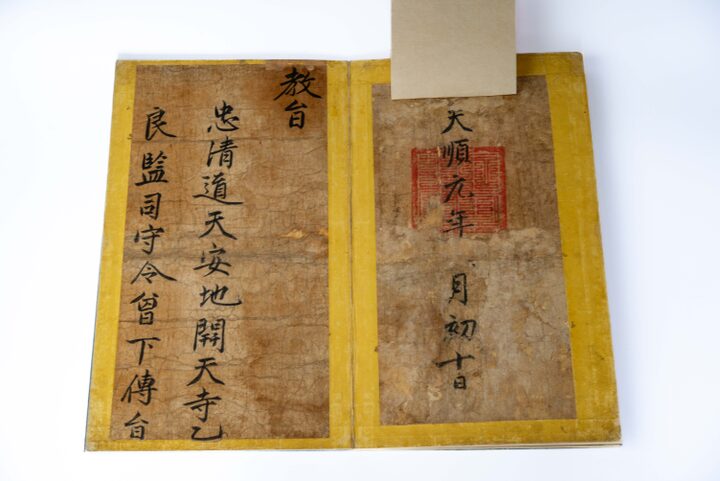 天順元年 月初十日
教旨
忠清道天安地開天寺乙
良監司守令曾下傳旨